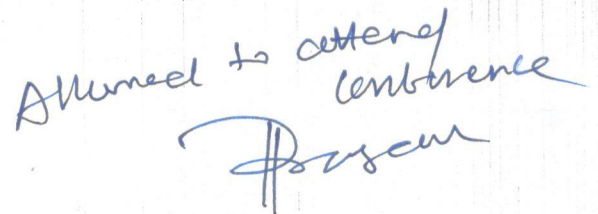 Allowed to attend
conference